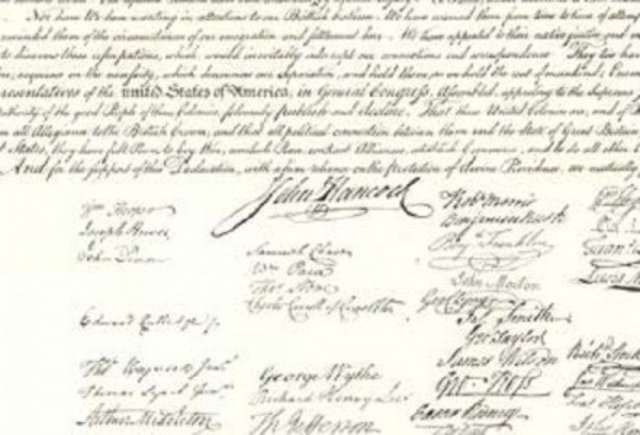 Nor have We been wanting in attentions to our Brittish brethren. We have warned them from time to time of
reminded them of the circumstances of our emigration and settlement here. We have appealed to their native justice and
to disavow these usurpations, which, would inevitably interrupt our connections and correspondence. They too ha
acquiesce in the necessity, which denounces our Separation, and hold them, as we hold the rest of mankind, Enem
resentatives of the united States of America, in General Congress, Assembled, appealing to the Supreme
uthority of the good People of these Colonies, solemnly publish and declare, That these United Colonies are, and of
all Allegiance to the British Crown, and that all political connection between them and the State of Great Britain
t States, they have full Power to levy War, conclude Peace, contract Alliances, establish Commerce, and to do all other
And for the support of this Declaration, with a firm reliance on the Protection of divine Providence, we mutually
John Hancock
Wm Hooper
Joseph Hewes
John Penn
Edward Rutledge
Thos Heyward Junr
Thomas Lynch Junr
Arthur Middleton
Samuel Chase
Wm Paca
Thos Stone
Charles Carroll of Carrollton
George Wythe
Richard Henry Lee
Th Jefferson
Robt Morris
Benjamin Rush
Benj Franklin
John Morton
Geo Clymer
Jas Smith
Geo Taylor
James Wilson
Geo Ross
Caesar Rodney